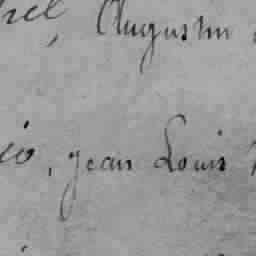 Augustin
jean Louis